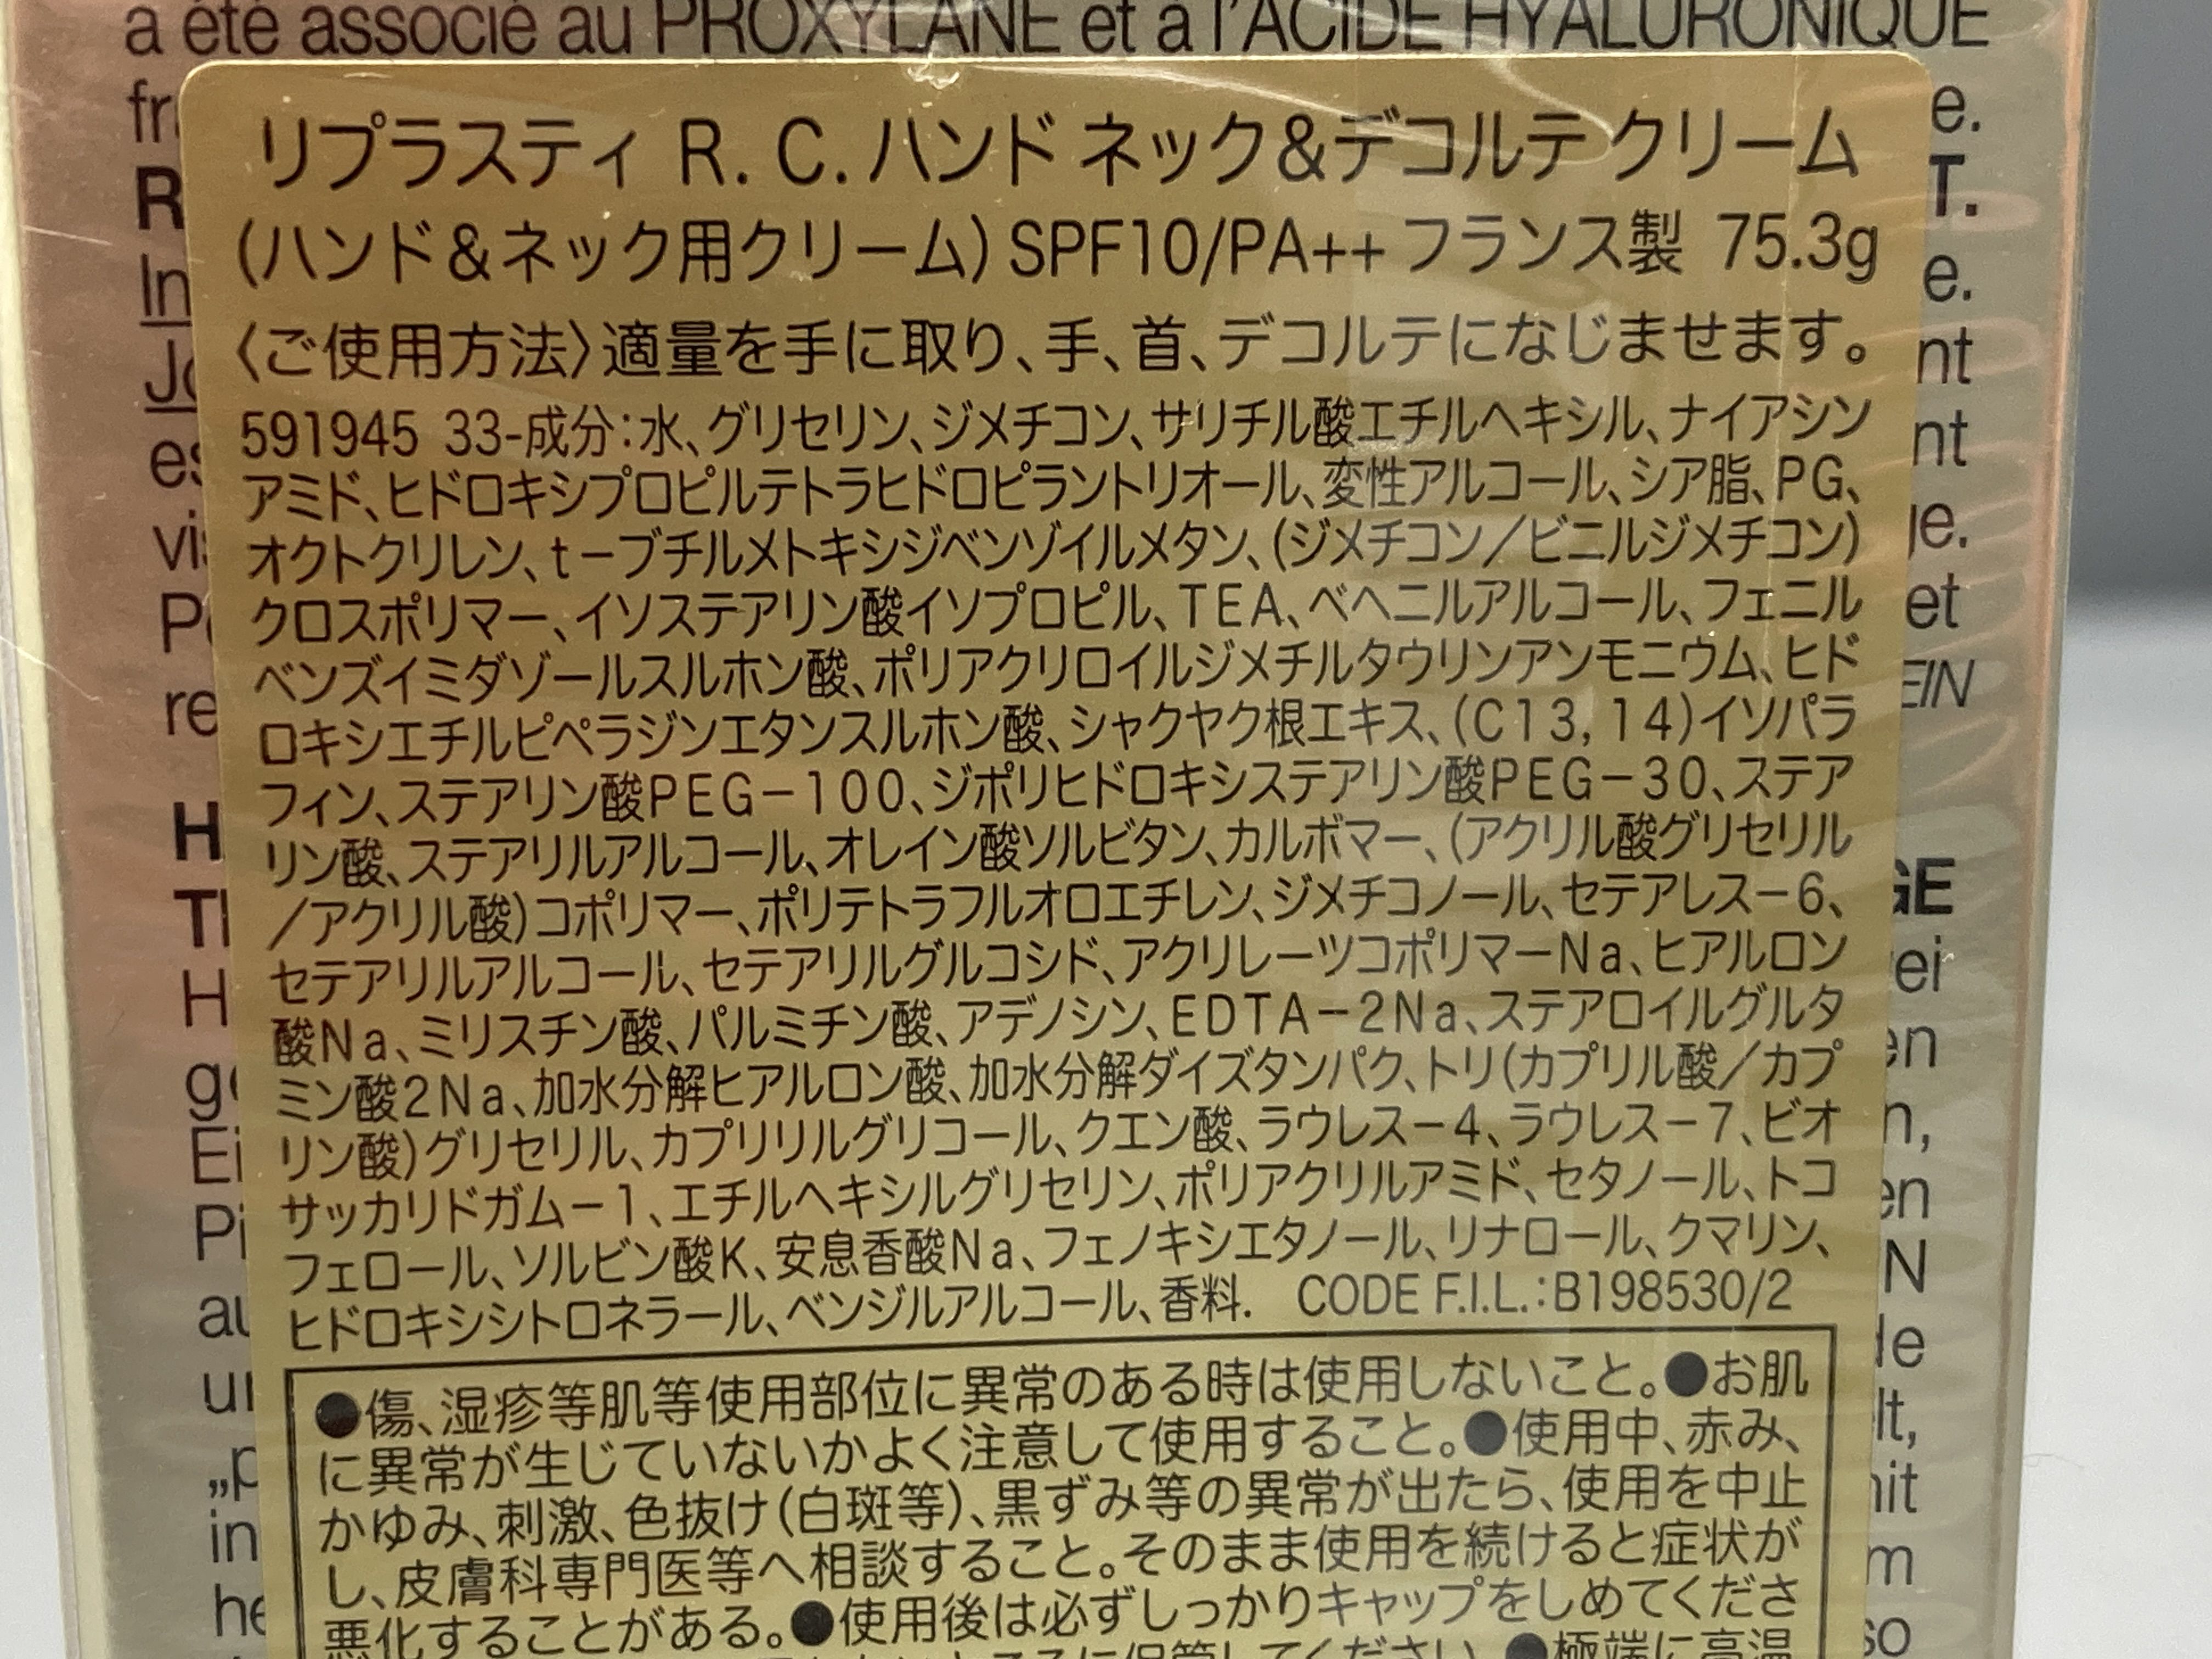 a été associé au PROXYLANE et à l'ACIDE HYALURONIQUE
リプラスティ R. C. ハンド ネック&デコルテ クリーム
(ハンド&ネック用クリーム) SPF10/PA++ フランス製 75.3g
〈ご使用方法〉適量を手に取り、手、首、デコルテになじませます。
591945 33-成分:水、グリセリン、ジメチコン、サリチル酸エチルヘキシル、ナイアシン
アミド、ヒドロキシプロピルテトラヒドロピラントリオール、変性アルコール、シア脂、PG、
オクトクリレン、t-ブチルメトキシジベンゾイルメタン、(ジメチコン/ビニルジメチコン)
クロスポリマー、イソステアリン酸イソプロピル、TEA、ベヘニルアルコール、フェニル
ベンズイミダゾールスルホン酸、ポリアクリロイルジメチルタウリンアンモニウム、ヒド
ロキシエチルピペラジンエタンスルホン酸、シャクヤク根エキス、(C13,14)イソパラ
フィン、ステアリン酸PEG-100、ジポリヒドロキシステアリン酸PEG-30、ステア
リン酸、ステアリルアルコール、オレイン酸ソルビタン、カルボマー、(アクリル酸グリセリル
/アクリル酸)コポリマー、ポリテトラフルオロエチレン、ジメチコノール、セテアレス-6、
セテアリルアルコール、セテアリルグルコシド、アクリレーツコポリマーNa、ヒアルロン
酸Na、ミリスチン酸、パルミチン酸、アデノシン、EDTA-2Na、ステアロイルグルタ
ミン酸2Na、加水分解ヒアルロン酸、加水分解ダイズタンパク、トリ(カプリル酸/カプ
リン酸)グリセリル、カプリリルグリコール、クエン酸、ラウレス-4、ラウレス-7、ビオ
サッカリドガム-1、エチルヘキシルグリセリン、ポリアクリルアミド、セタノール、トコ
フェロール、ソルビン酸K、安息香酸Na、フェノキシエタノール、リナロール、クマリン、
ヒドロキシシトロネラール、ベンジルアルコール、香料. CODE F.I.L.:B198530/2
●傷、湿疹等肌等使用部位に異常のある時は使用しないこと。●お肌
に異常が生じていないかよく注意して使用すること。●使用中、赤み、
かゆみ、刺激、色抜け(白斑等)、黒ずみ等の異常が出たら、使用を中止
し、皮膚科専門医等へ相談すること。そのまま使用を続けると症状が
悪化することがある。●使用後は必ずしっかりキャップをしめてくださ
ところに保管してください。●極端に高温